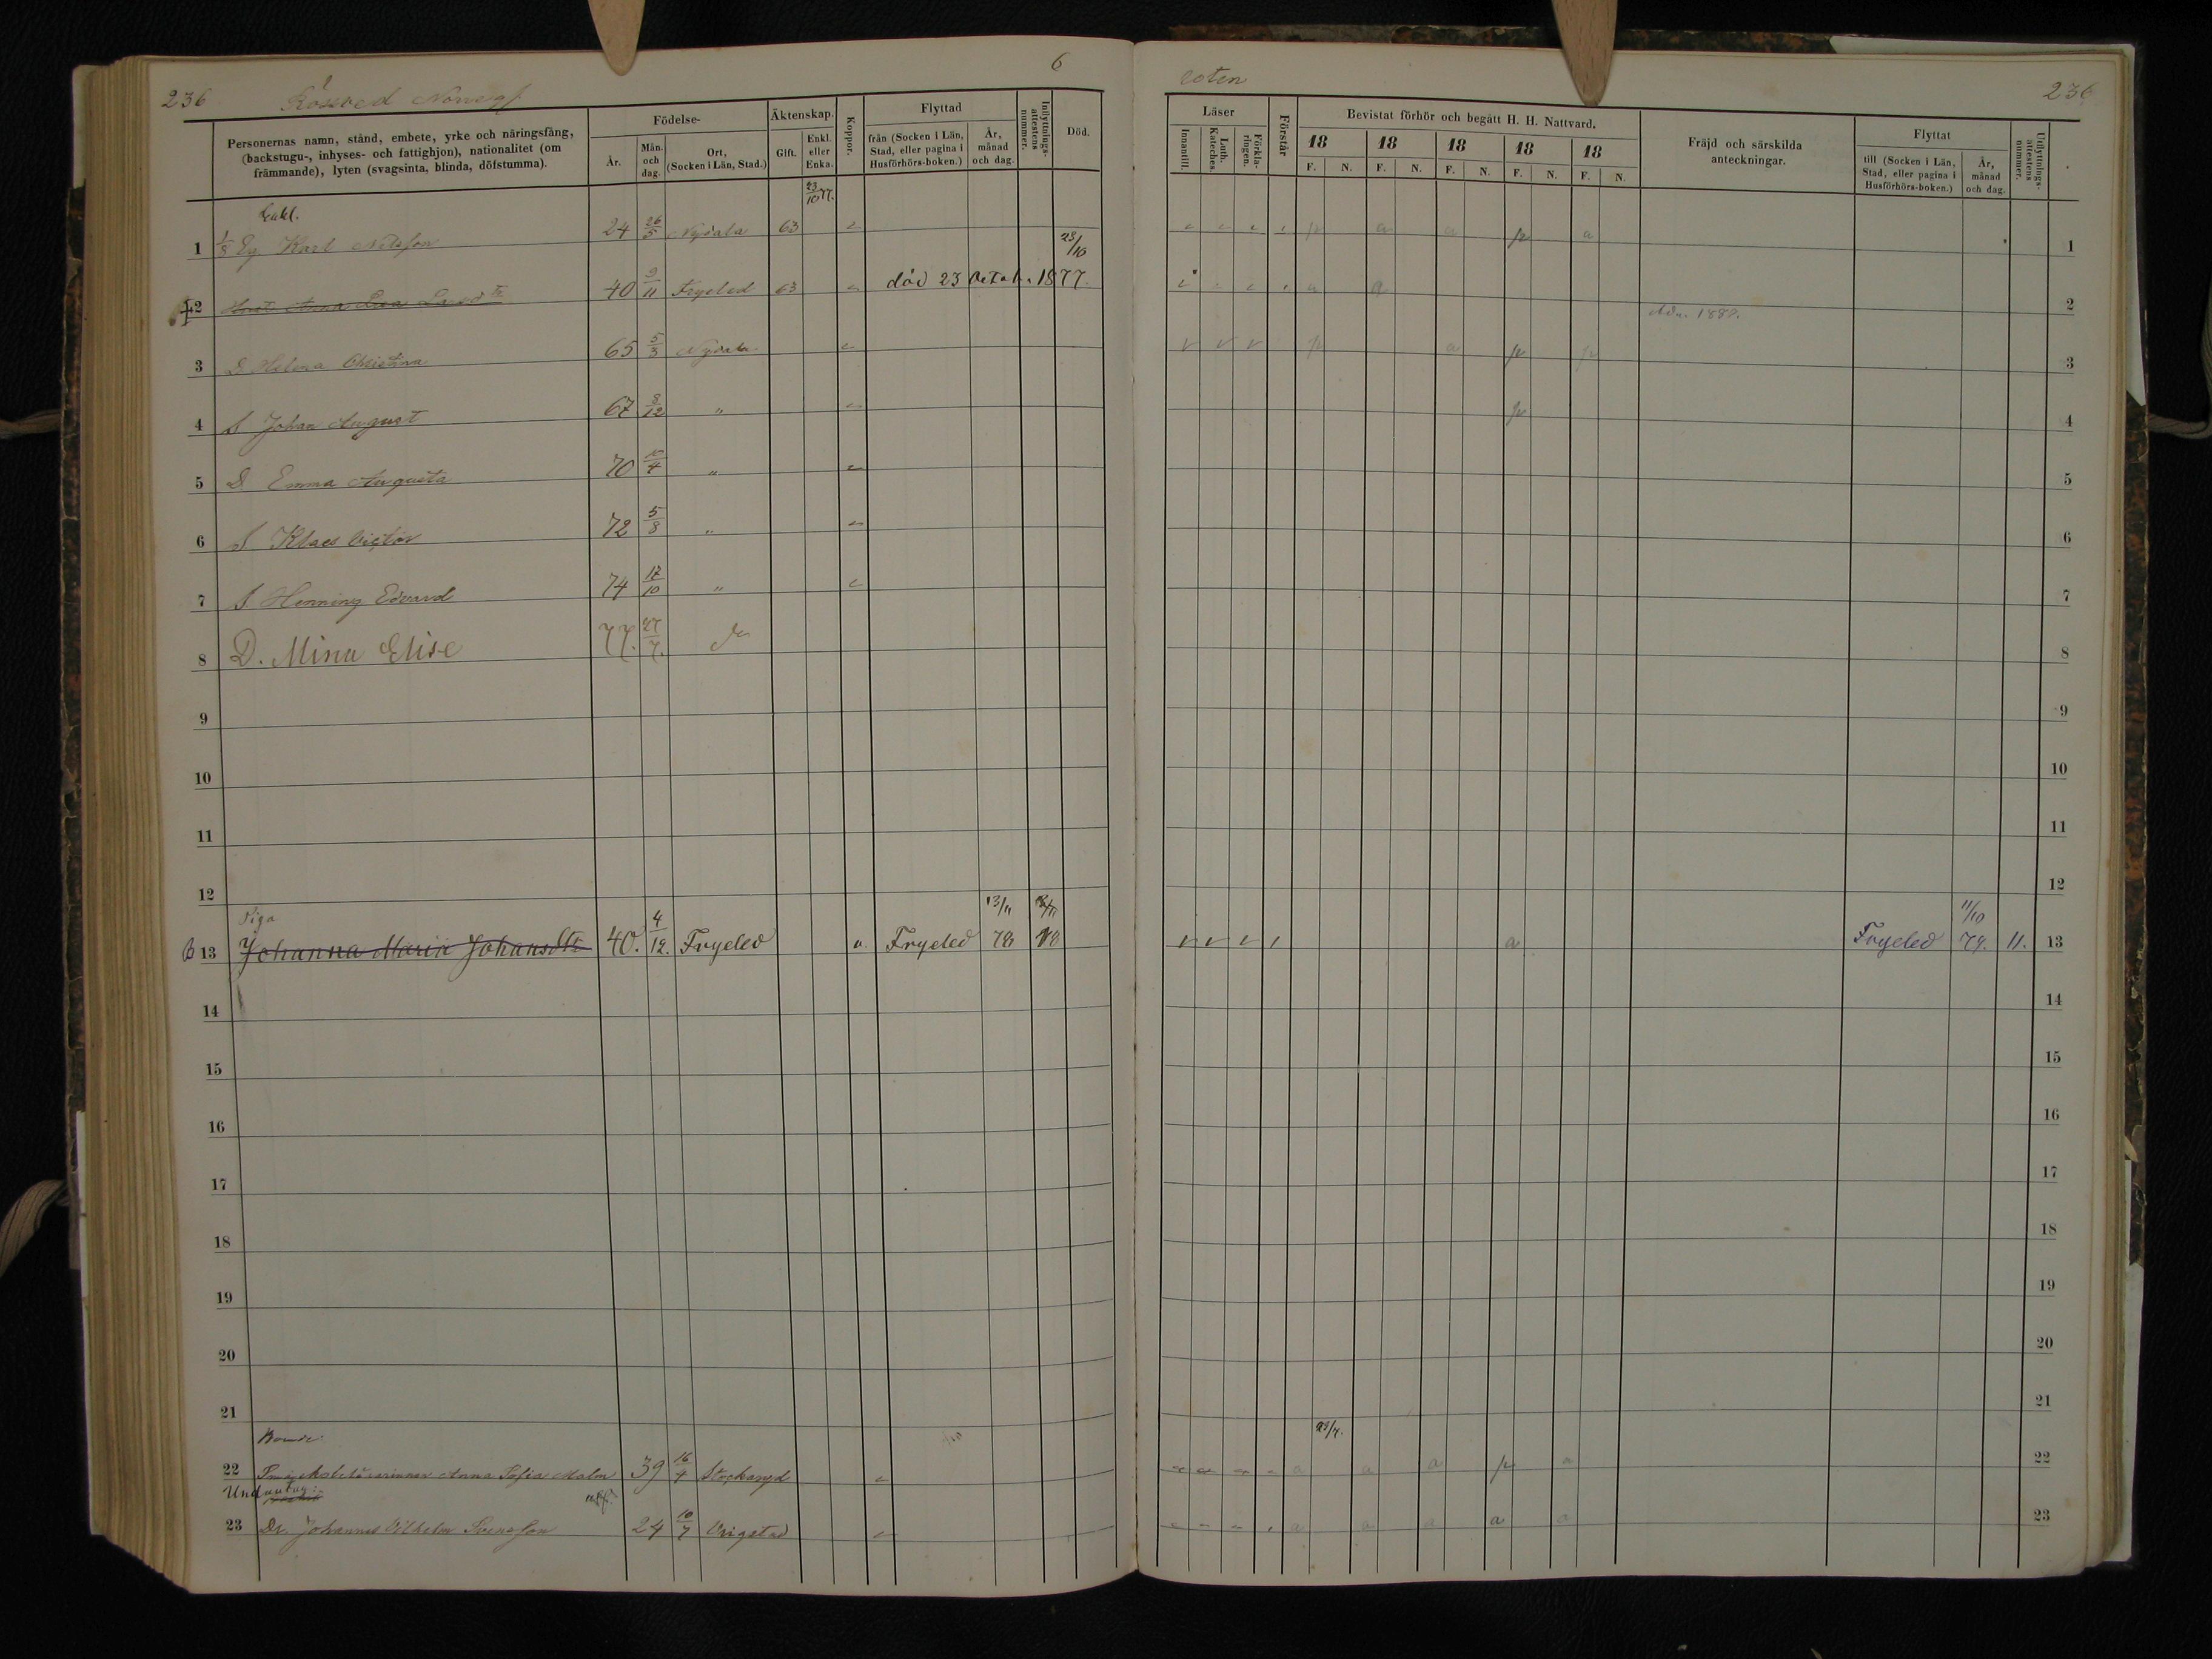 236
Norregd
6
Personernas namn, stånd, embete, yrke och näringsfång, (backstugu-, inhyses- och fattighjon), nationalitet (om främmande), lyten (svagsinta, blinda, döfstumma).
Födelse-
År.
Mån. och dag.
Ort, (Socken i Län, Stad.)
Äktenskap.
Gift.
Enkl. eller Enka.
Koppor.
Flyttad
från (Socken i Län, Stad, eller pagina i Husförhörs-boken.)
År, månad och dag.
Inflyttnings-attestens nummer.
Död.
23/10 77.
1 1/8 Eg Karl Nilsson 24 26/5 Nydala 63
23/10
2 Anna Lisa 40 9/11 Fryeled 63 död 23 Octob. 1877.
3 D Helena Christina 65 5/3 Nydala
4 S Johan August 67 8/12 "
5 D Emma Augusta 70 10/4 "
6 S Klaes Victor 72 5/8 "
7 S Henning Edvard 74 17/10 "
8 D. Mina Elise 77. 27/7.
9
10
11
12
Piga 13/11
13 Johanna Maria Johansdtr 40. 4/12. Fryeled Fryeled 78
14
15
16
17
18
19
20
21
22 Anna Sofia Malm 39 16/4 Stockaryd
Undantag:
23 Johannes Vilhelm Svensson 24 10/7 Vrigstad
roten
236
Läser
Innantill.
Luth. Kateches.
Förkla-ringen.
Förstår
Bevistat förhör och begått H. H. Nattvard.
18 18 18 18 18
F. N. F. N. F. N. F. N. F. N.
Fräjd och särskilda anteckningar.
Flyttat
till (Socken i Län, Stad, eller pagina i Husförhörs-boken.)
År, månad och dag.
Utflyttnings-attestens nummer.
p a a p a 1
a a 2
1882.
p a p p 3
p 4
5
6
7
8
9
10
11
12
11/10
a Fryeled 79. 11. 13
14
15
16
17
18
19
20
21
23/4.
a a a p a 22
a a a a a 23